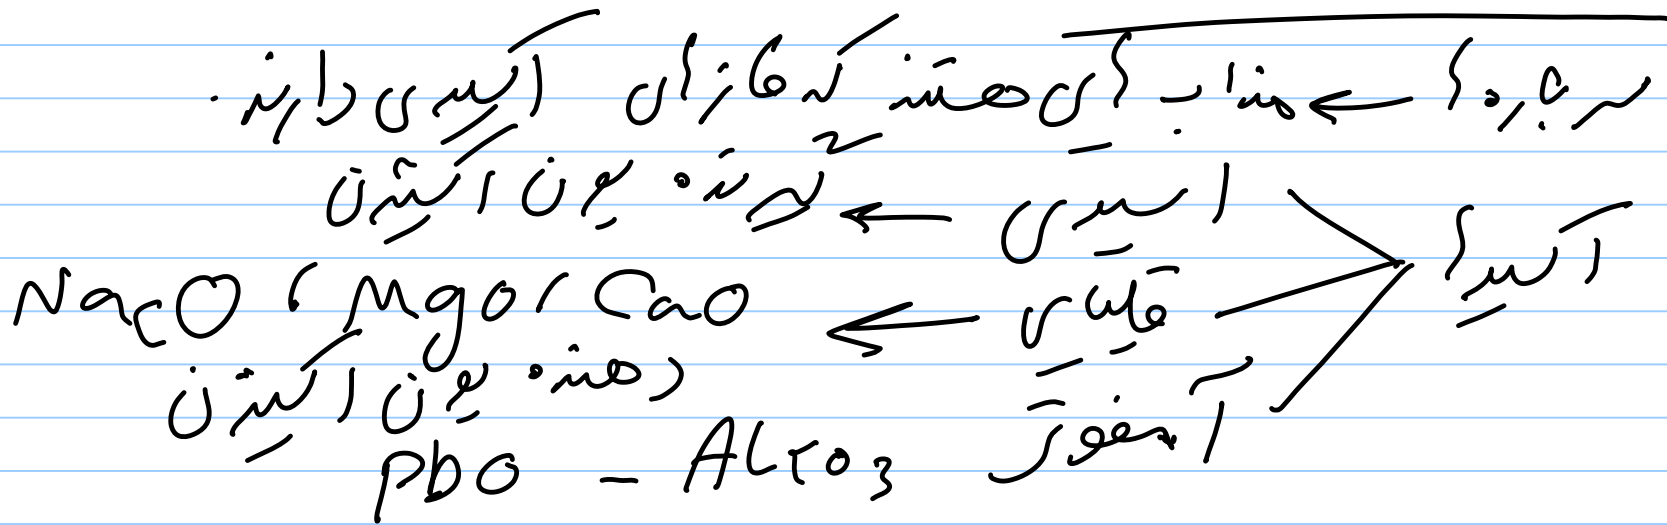 سرباره ها ← مذاب هایی هستند که فاز های اکسیدی دارند.
اکسید ها
اسیدی ← گیرنده یون اکسیژن
قلیایی ← CaO , MgO , Na₂O
دهنده یون اکسیژن
آمفوتر Al₂O₃ - PbO